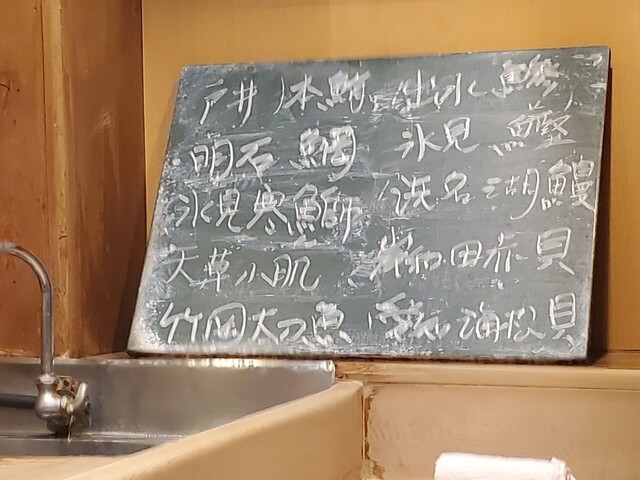 戸井 本鮪 出水 鯵
明石 鯛 氷見 鰹
氷見寒鰤 浜名湖鰻
天草小肌 田赤貝
竹岡太刀魚 海松貝